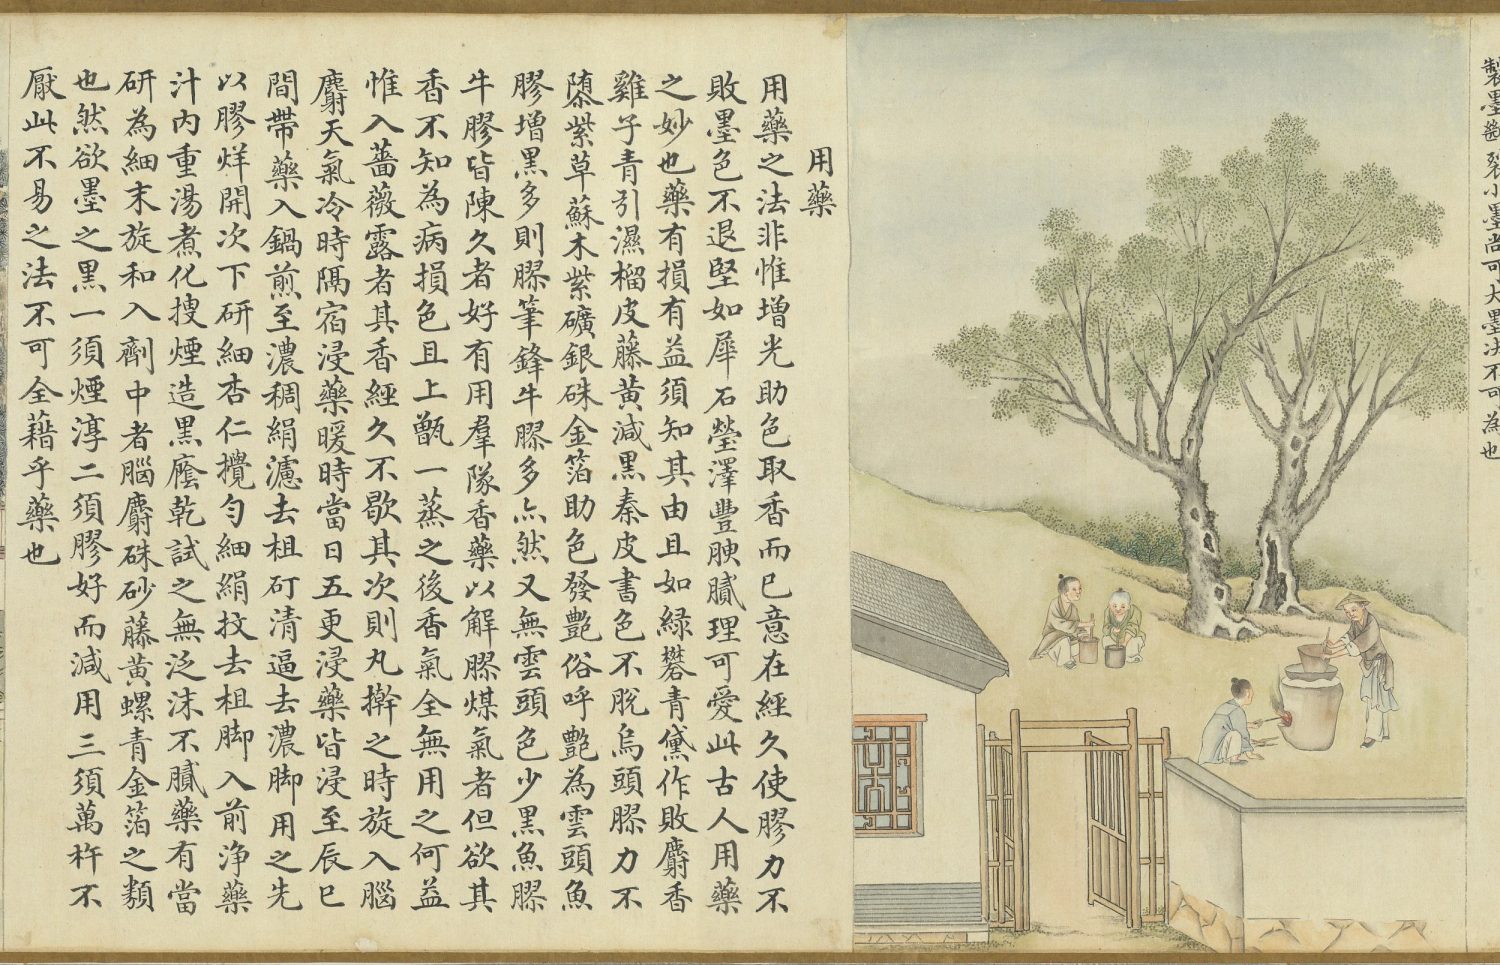 製墨𥕢裂小墨尚可大墨决不可為也
用藥
用藥之法非惟增光助色取香而已意在經久使膠力不
敗墨色不退堅如犀石瑩澤豐腴膩理可愛此古人用藥
之妙也藥有損有益須知其由且如綠礬青黛作敗麝香
雞子青引濕榴皮藤黃減黑秦皮書色不脫烏頭膠力不
隳紫草蘇木紫礦銀硃金箔助色發艷俗呼艷為雲頭魚
膠增黑多則膠筆鋒牛膠多亦然又無雲頭色少黑魚膠
牛膠皆陳久者好有用羣隊香藥以解膠煤氣者但欲其
香不知為病損色且上甑一蒸之後香氣全無用之何益
惟入薔薇露者其香經久不歇其次則丸擀之時旋入腦
麝天氣冷時隔宿浸藥暖時當日五更浸藥皆浸至辰巳
間帶藥入鍋煎至濃稠絹濾去柤矴清逼去濃脚用之先
以膠烊開次下研細杏仁攪勻細絹捩去柤脚入前淨藥
汁內重湯煮化搜煙造黑䕃乾試之無泛沫不膩藥有當
研為細末旋和入劑中者腦麝硃砂藤黃螺青金箔之類
也然欲墨之黑一須煙淳二須膠好而減用三須萬杵不
厭此不易之法不可全藉乎藥也